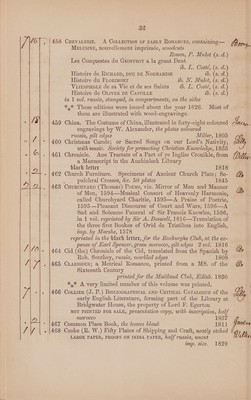 32
458 Chevalerie. A Collection of early Romances, containing—
Melusine, nouvellement imprimée, woodcuts
Rouen, P. Mulot (s. d.)
Les Conquestes du Geoffroy a la grant Dent
ib. L. Costé, (s. d.)
Histoire de Richard, duc de Normandie ib. (s. d.)
Histoire du Florimont ib. N. Mulot, (s. d.)
Vitzenzele de sa Vie et de ses Saints ib. L. Costé, (s. d.)
Histoire de Olivier de Castille ib. (s. d.)
in 1 vol. russia, stamped, in compartments, on the sides
*** These editions were issued about the year 1626. Most of
them are illustrated with wood-engravings.
459 China. The Costume of China, illustrated in forty-eight coloured
engravings by W. Alexander, the plates coloured
russia, gilt edges Miller, 1805
460 Christmas Carols; or Sacred Songs on our Lord's Nativity,
with music. Society for promoting Christian Knowledge, 1833
461 Chronicle. Ane Tractate of a Part of ye Inglise Cronikle, from
a Manuscript in the Auchinleck Library
black letter 1818
462 Church Furniture. Specimens of Ancient Church Plate; Se-
pulchral Crosses, &c. 50 plates 1845
463 Churchyard (Thomas) Poems, viz. Mirror of Man and Manner
of Men, 1594—Musical Consort of Heavenly Harmonie,
called Churchyard Charitie, 1595—A Praise of Poetrie,
1595—Pleasant Discourse of Court and Wars, 1596—A
Sad and Solemne Funeral of Sir Francis Knowles, 1596,
in 1 vol. reprinted by Sir A. Boswell, 1816—Translation of
the three first Bookes of Ovid de Tristibus into English,
imp. by Marshe, 1578
reprinted in the black letter, for the Roxburghe Club, at the ex-
pense of Earl Spencer, green morocco, gilt edges 2 vol. 1816
464 Cid (the) Chronicle of the Cid, translated from the Spanish by
Rob. Southey, russia, marbled edges 1808
465 Clariodus; a Metrical Romance, printed from a MS. of the
Sixteenth Century
printed for the Maitland Club, Edinb. 1830
*** A very limited number of this volume was printed.
466 Collier (J. P.) Bibliographical and Critical Catalogue of the
early English Literature, forming part of the Library at
Bridgewater House, the property of Lord F. Egerton
not printed for sale, presentation copy, with inscription, half
morocco 1837
467 Common Place Book, the leaves blank 1811
468 Cooke (E. W.) Fifty Plates of Shipping and Craft, neatly etched
large paper, proofs on india paper, half russia, uncut
imp. size. 1829